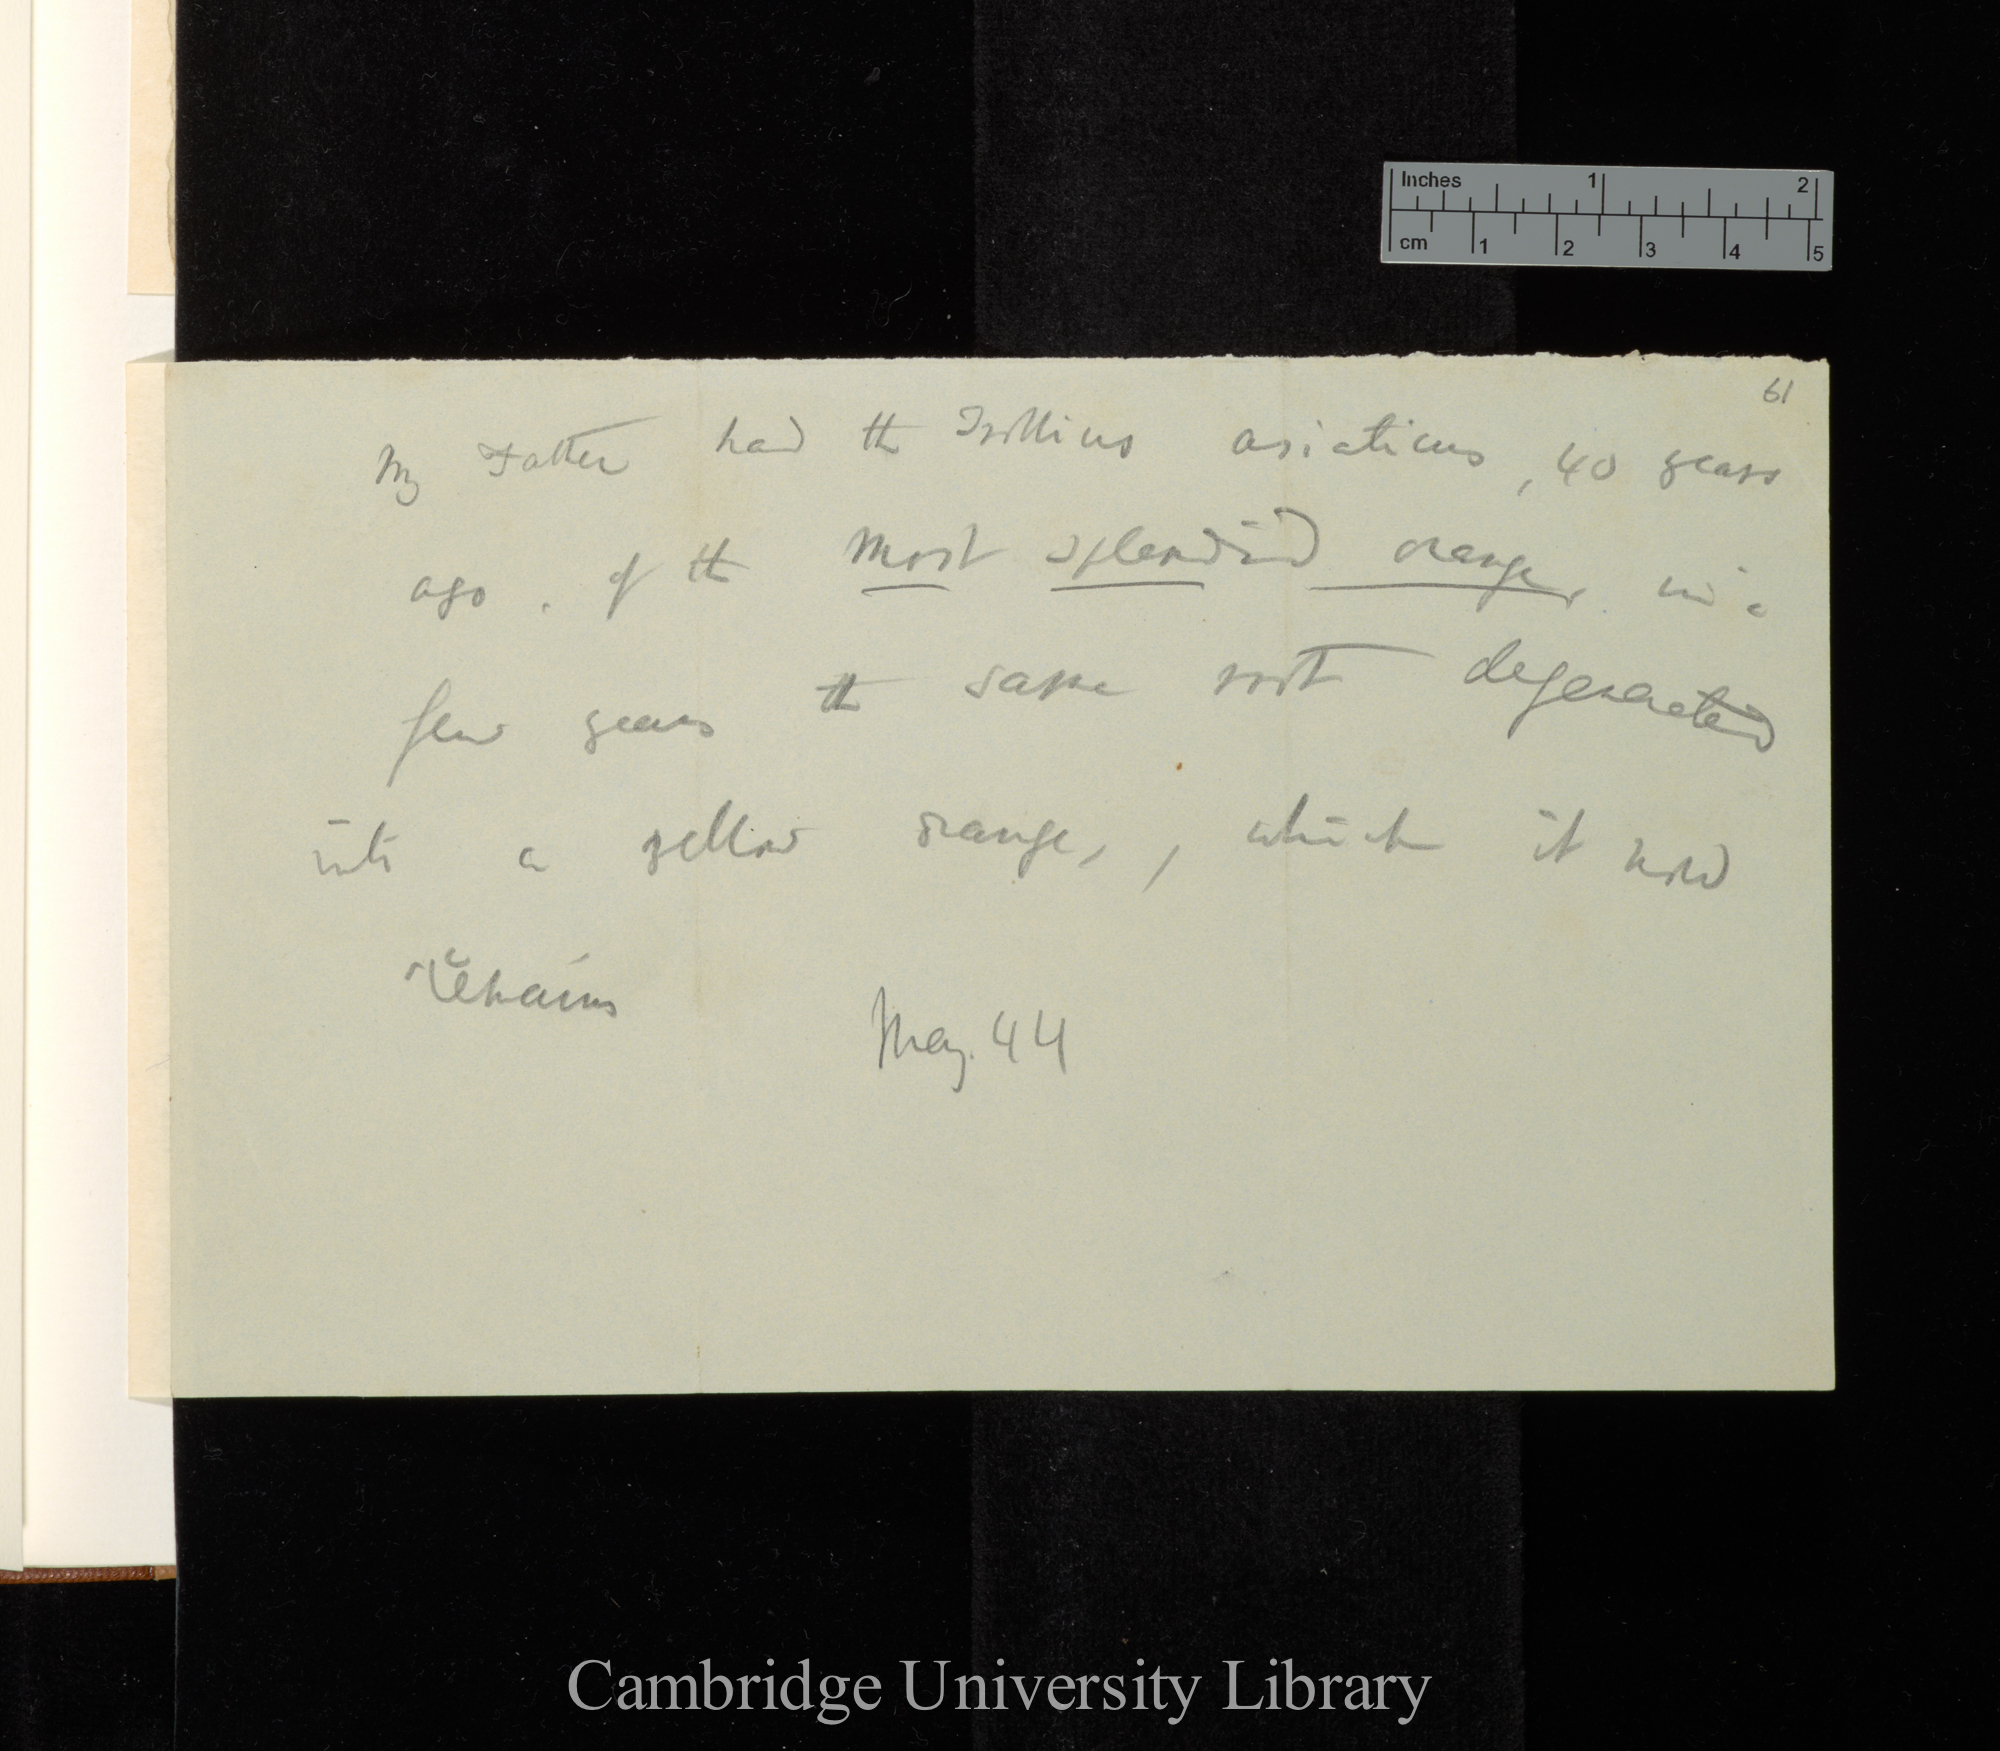 Inches 1 2
cm 1 2 3 4 5
61
My Father had the Trollius asiaticus, 40 years
ago, of the most splendid orange, in a
few years the same root degenerated
into a yellow orange, , which it now
remains
May. 44
Cambridge University Library